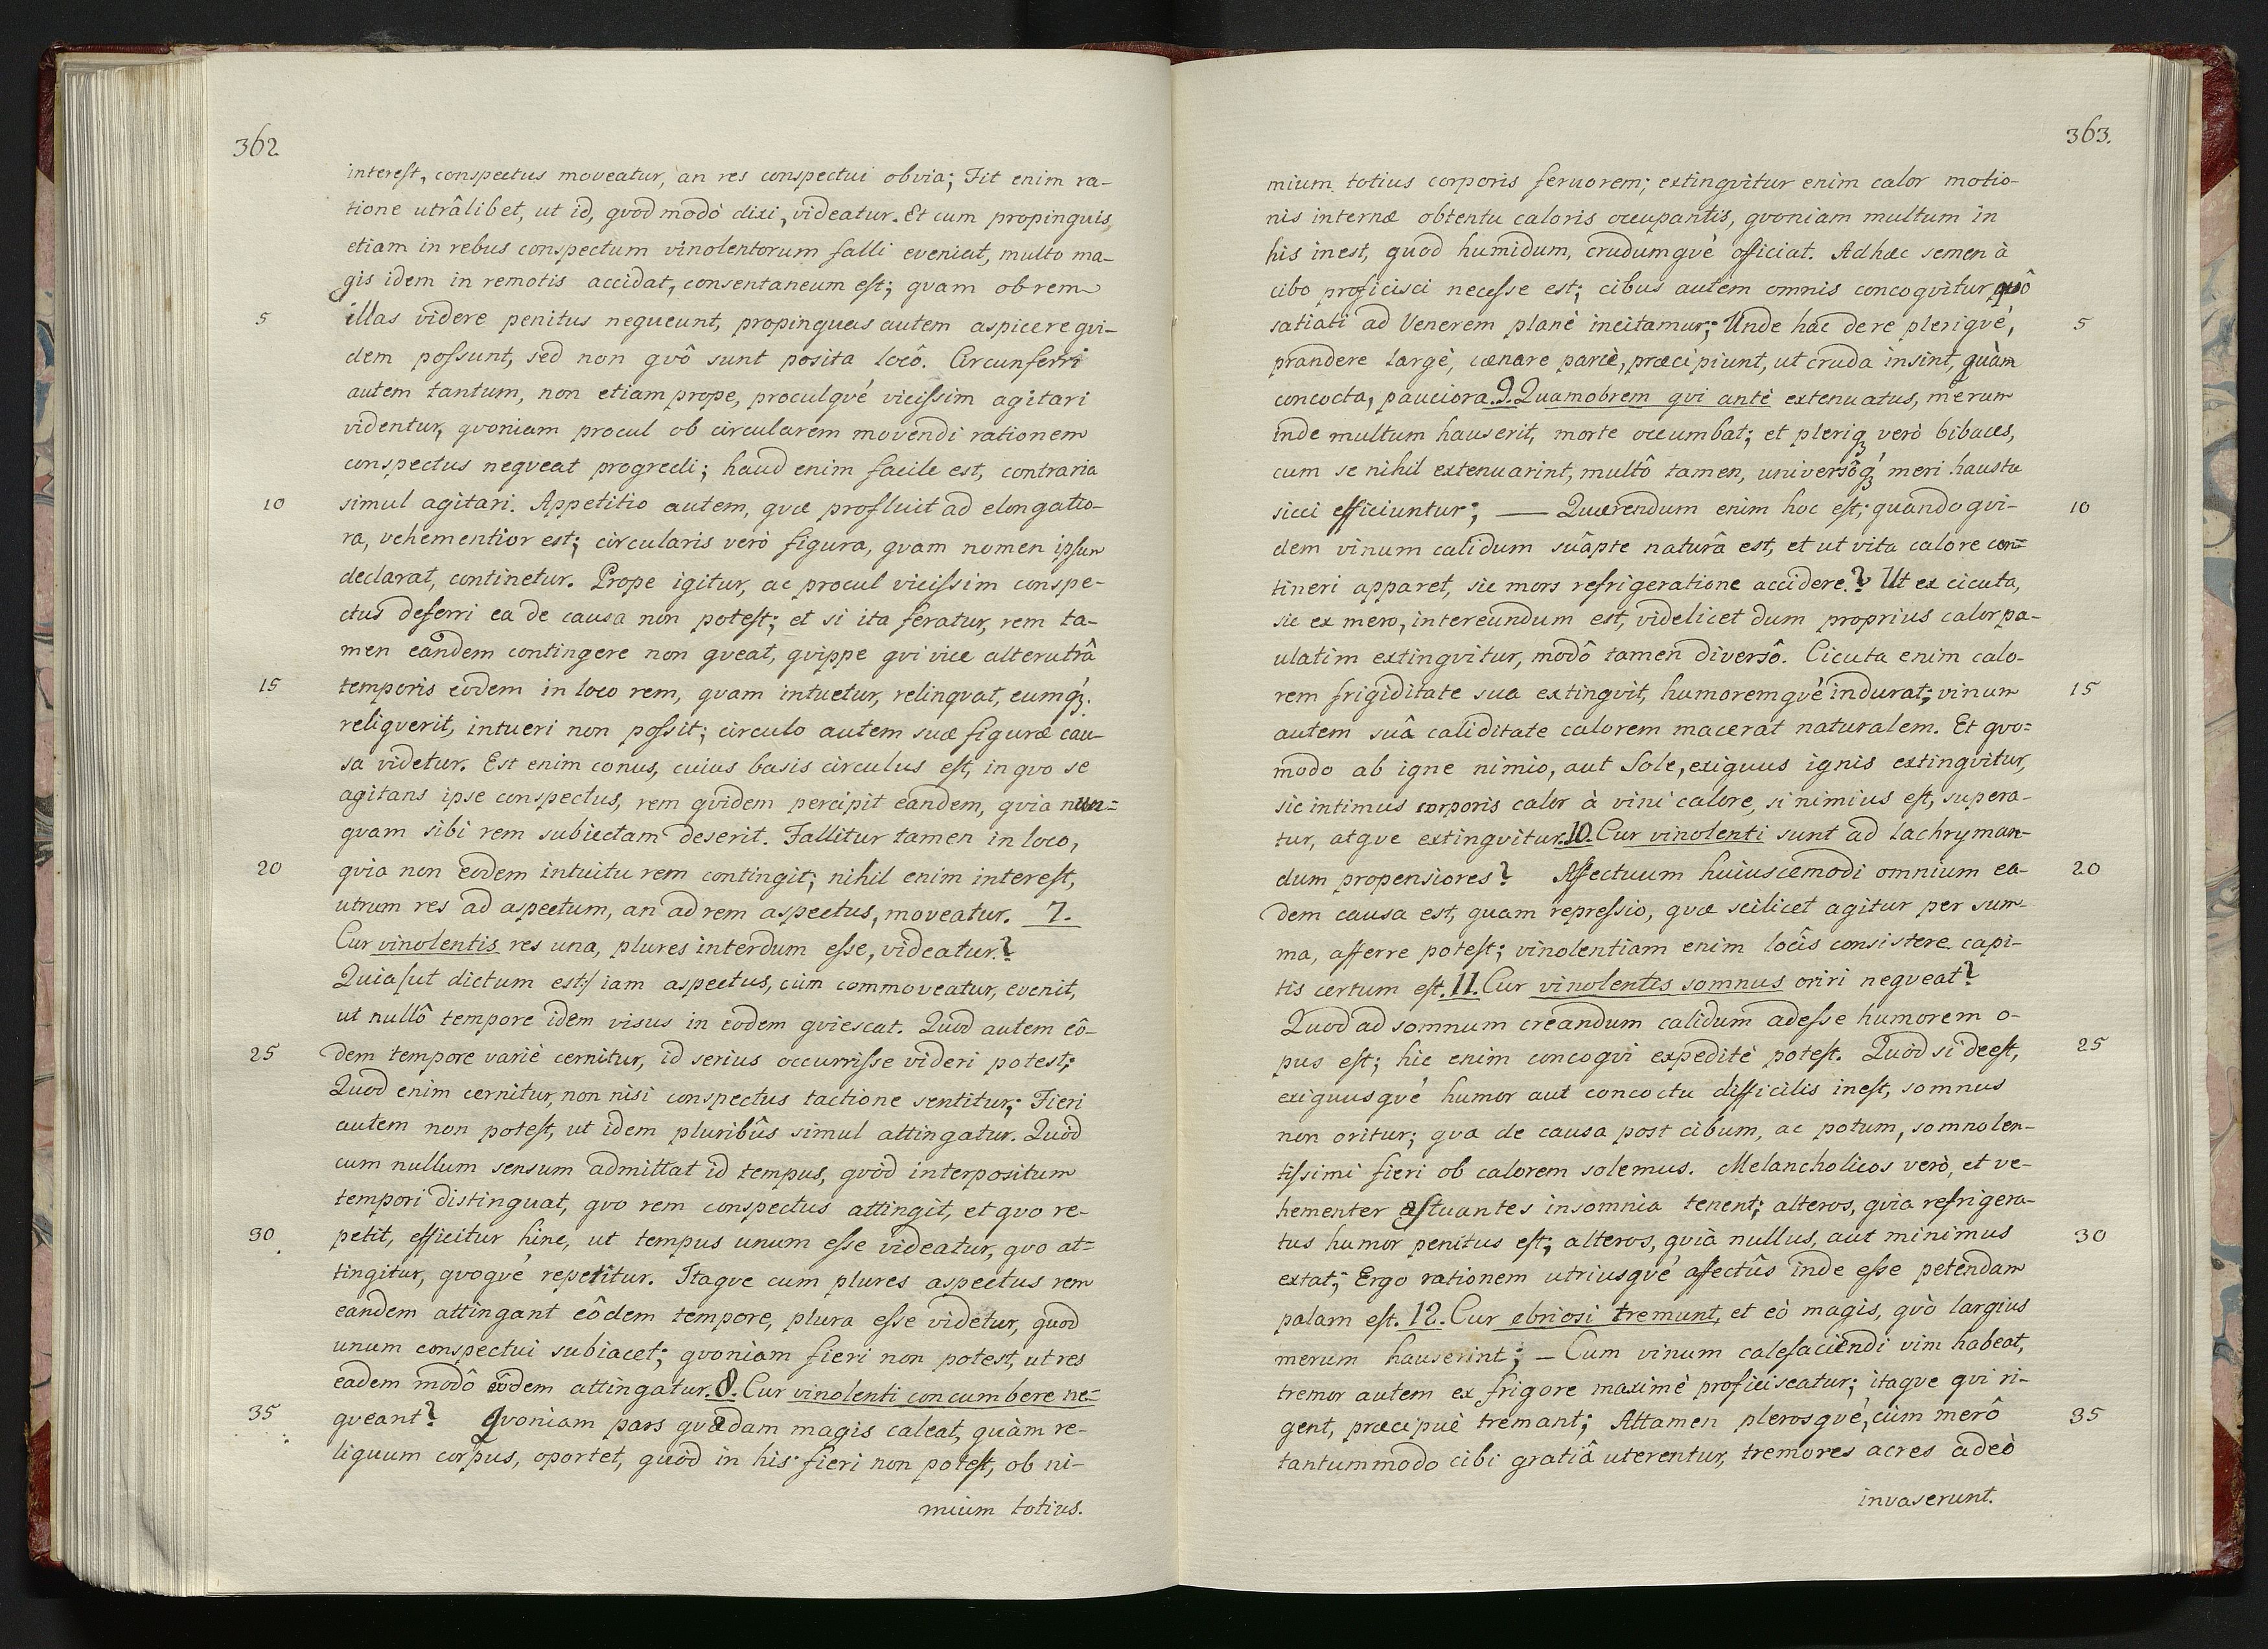 362
interest, conspectus moveatur, an res conspectui obvia; Fit enim ra-
tione utrâlibet, ut id, qvod modò dixi, videatur. Et cum propinquis
etiam in rebus conspectum vinolentorum falli eveniat, multo ma-
gis idem in remotis accidat, consentaneum est; qvam ob rem
5 illas videre penitus nequeunt, propinquas autem aspicere qvi-
dem possunt, sed non qvô sunt posita locô. Circunferri
autem tantum, non etiam prope, proculqvé vicissim agitari
videntur, qvoniam procul ob circularem movendi rationem
conspectus neqveat progredi; haud enim facile est, contraria
10 simul agitari. Appetitio autem, qvæ profluit ad elongatio-
ra, vehementior est; circularis verò figura, qvam nomen ipsum
declarat, continetur. Prope igitur, ac procul vicissim conspe-
ctus deferri ea de causa non potest; et si ita feratur, rem ta-
men eandem contingere non qveat, qvippe qvi vice alterutrâ
15 temporis eodem in loco rem, qvam intuetur, relinqvat, eumqꝫ́.
reliqverit, intueri non possit; circulo autem suæ figuræ cau-
sa videtur. Est enim conus, cuius basis circulus est, in qvo se
agitans ipse conspectus, rem qvidem percipit eandem, qvia nun=
qvam sibi rem subiectam deserit. Fallitur tamen in loco,
20 qvia non eodem intuitu rem contingit; nihil enim interest,
utrum res ad aspectum, an ad rem aspectus, moveatur. 7.
Cur vinolentis res una, plures interdum esse, videatur.?
Quia /ut dictum est:/ iam aspectus, cùm commoveatur, evenit,
ut nullô tempore idem visus in eodem qviescat. Quod autem eô-
25 dem tempore variè cernitur, id serius occurrisse videri potest;
Quod enim cernitur, non nisi conspectus tactione sentitur; Fieri
autem non potest, ut idem pluribûs simul attingatur. Quòd
cum nullum sensum admittat id tempus, qvòd interpositum
tempori distinguat, qvo rem conspectus attingit, et qvo re-
30 petit, efficitur hinc, ut tempus unum esse videatur, qvo at=
tingitur, qvoqvé repetitur. Itaqve cum plures aspectus rem
eandem attingant eôdem tempore, plura esse videtur, quod
unum conspectui subiacet; qvoniam fieri non potest, ut res
eadem modô eôdem attingatur. 8. Cur vinolenti concumbere ne=
35 qveant? Qvoniam pars qvædam magis caleat, quàm re-
liquum corpus, oportet, quòd in his fieri non potest, ob ni-
mium totius.
363.
mium totius corporis fervorem; extingvitur enim calor motio-
nis internæ obtentu caloris occupantis, qvoniam multum in
his inest, quod humidum, crudumqvè officiat. Adhæc semen à
cibo proficisci necesse est; cibus autem omnis concoqvitur quô
5 satiati ad Venerem planè incitamur; Unde hac de re pleriqvé,
prandere largè, cænare parcè, præcipiunt, ut cruda insint, quàm
concocta, pauciora. 9. Quamobrem qvi antè extenuatus, merum
inde multum hauserit, morte occumbat; et pleriqꝫ verò bibaces,
cum se nihil extenuarint, multô tamen, universôqꝫ́ meri haustu
10 sicci efficiuntur; — Quærendum enim hoc est; quandoqvi-
dem vinum calidum suâpte naturâ est, et ut vita calore con=
tineri apparet, sic mors refrigeratione accidere.? Ut ex cicuta,
sic ex mero, intereundum est, videlicet dum proprius calor pa-
ulatim extingvitur, modô tamen diversô. Cicuta enim calo-
15 rem frigiditate sua extingvit, humoremqvè indurat; vinum
autem suâ caliditate calorem macerat naturalem. Et qvo=
modo ab igne nimio, aut Sole, exiguus ignis extingvitur,
sic intimus corporis calor à vini calore, si nimius est, supera-
tur, atqve extingvitur. 10. Cur vinolenti sunt ad lachryman-
20 dum propensiores? Affectuum huiuscemodi omnium ea-
dem causa est, quam repressio, qvæ scilicet agitur per sum-
ma, afferre potest; vinolentiam enim locîs consistere capi-
tis certum est. 11. Cur vinolentis somnus oriri neqveat?
Quod ad somnum creandum calidum adesse humorem o-
25 pus est; hic enim concoqvi expeditè potest. Quòd si deest,
exiguusqvé humor aut concoctu difficilis inest, somnus
non oritur; qva de causa post cibum, ac potum, somnolen-
tissimi fieri ob calorem solemus. Melancholicos verò, et ve-
hementer æstuantes insomnia tenent; alteros, qvia refrigera-
30 tus humor penitus est; alteros, qvià nullus, aut minimus
extat; Ergo rationem utriusqvé affectûs inde esse petendam
palam est. 12. Cur ebriosi tremunt, et eò magis, qvò largius
merum hauserint; — Cum vinum calefaciendi vim habeat,
tremor autem ex frigore maximè proficiscatur; itaqve qvi ri-
35 gent, præcipuè tremant; Attamen plerosqvé, cùm merô
tantummodo cibi gratiâ uterentur, tremores acres adeò
invaserunt.